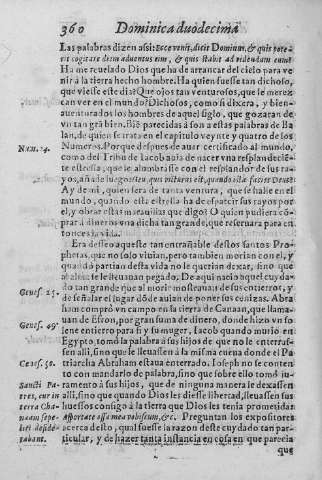 360 Dominica duodecima
Las palabras dizen assi: Ecce venit, dicit Dominus, & quis pote
rit cogitare diem aduentus eius, & quis stabit ad videndum eum?
Ha me reuelado Dios que ha de arrancar del cielo para ve
nir à la tierra hecho hombre. Ha quien fuesse tan dichoso,
que viesse este dia? Que ojos tan venturosos, que le merez
can ver en el mundo? Dichosos, como si dixera, y bien-
auenturados los hombres de aquel siglo, que gozaran de
vn tã grã bien. Biẽ parecidas à son a estas palabras de Ba
lan, de quien se trata en el capitulo veynte y quatro de los
Num. 24. Numeros. Porque despues de auer certificado al mundo,
como del Tribu de Iacob auia de nacer vna resplandecië-
te estrella, que le alumbrasse con el resplandor de sus ra-
yos, añade luego:
Ay de mi, quien sera de tanta ventura, que se halle en el
mundo, quando esta estrella ha de espatzir sus rayos por
el, y obrar estas marauillas que digo? O quien pudiera cõ-
prar à dineros vna dicha tan grande, que reseruara para en-
tonces la vida.
Era desseo aqueste tan entrañable destos santos Pro-
phetas, que no solo viuian, pero tambien morian con el, y
quando partian desta vida no le querian dexar, sino que
abaxo le lleuauan pegado. De aqui nacio aquel cuyda-
do tan grande que al morir mostrauan de sus entierros, y
Genes. 25. de señalar el lugar dõde auian de poner sus cenizas. Abra
ham comprò vn campo en la tierra de Canaan, que llama-
uan de Efron, por gran suma de dinero, donde hizo vn so-
Genes. 49. lene entierro para si y su muger, Iacob quando murio en
Egypto, tomò la palabra à sus hijos de que no le enterras-
sen alli, sino que le lleuassen à la misma cueua donde el Pa
Genes. 50. triarcha Abraham estaua enterrado. Ioseph no se conten
to con mandarlo de palabra, sino que sobre ello tomò iu-
Sancti Pa- ramento à sus hijos, que de ninguna manera le dexassen
tres, cur in alli, sino que quando Dios les diesse libertad, lleuassen sus
terra Cha- huessos consigo à la tierra que Dios les tenia prometida:
naam sepe- asportate ossa mea vobiscum, &c. Preguntan los expositores
liri deside- acerca desto, qual fuesse la razon deste cuydado tan par-
rabant. ticular, y de hazer tanta instancia en cosa en que parecia
que